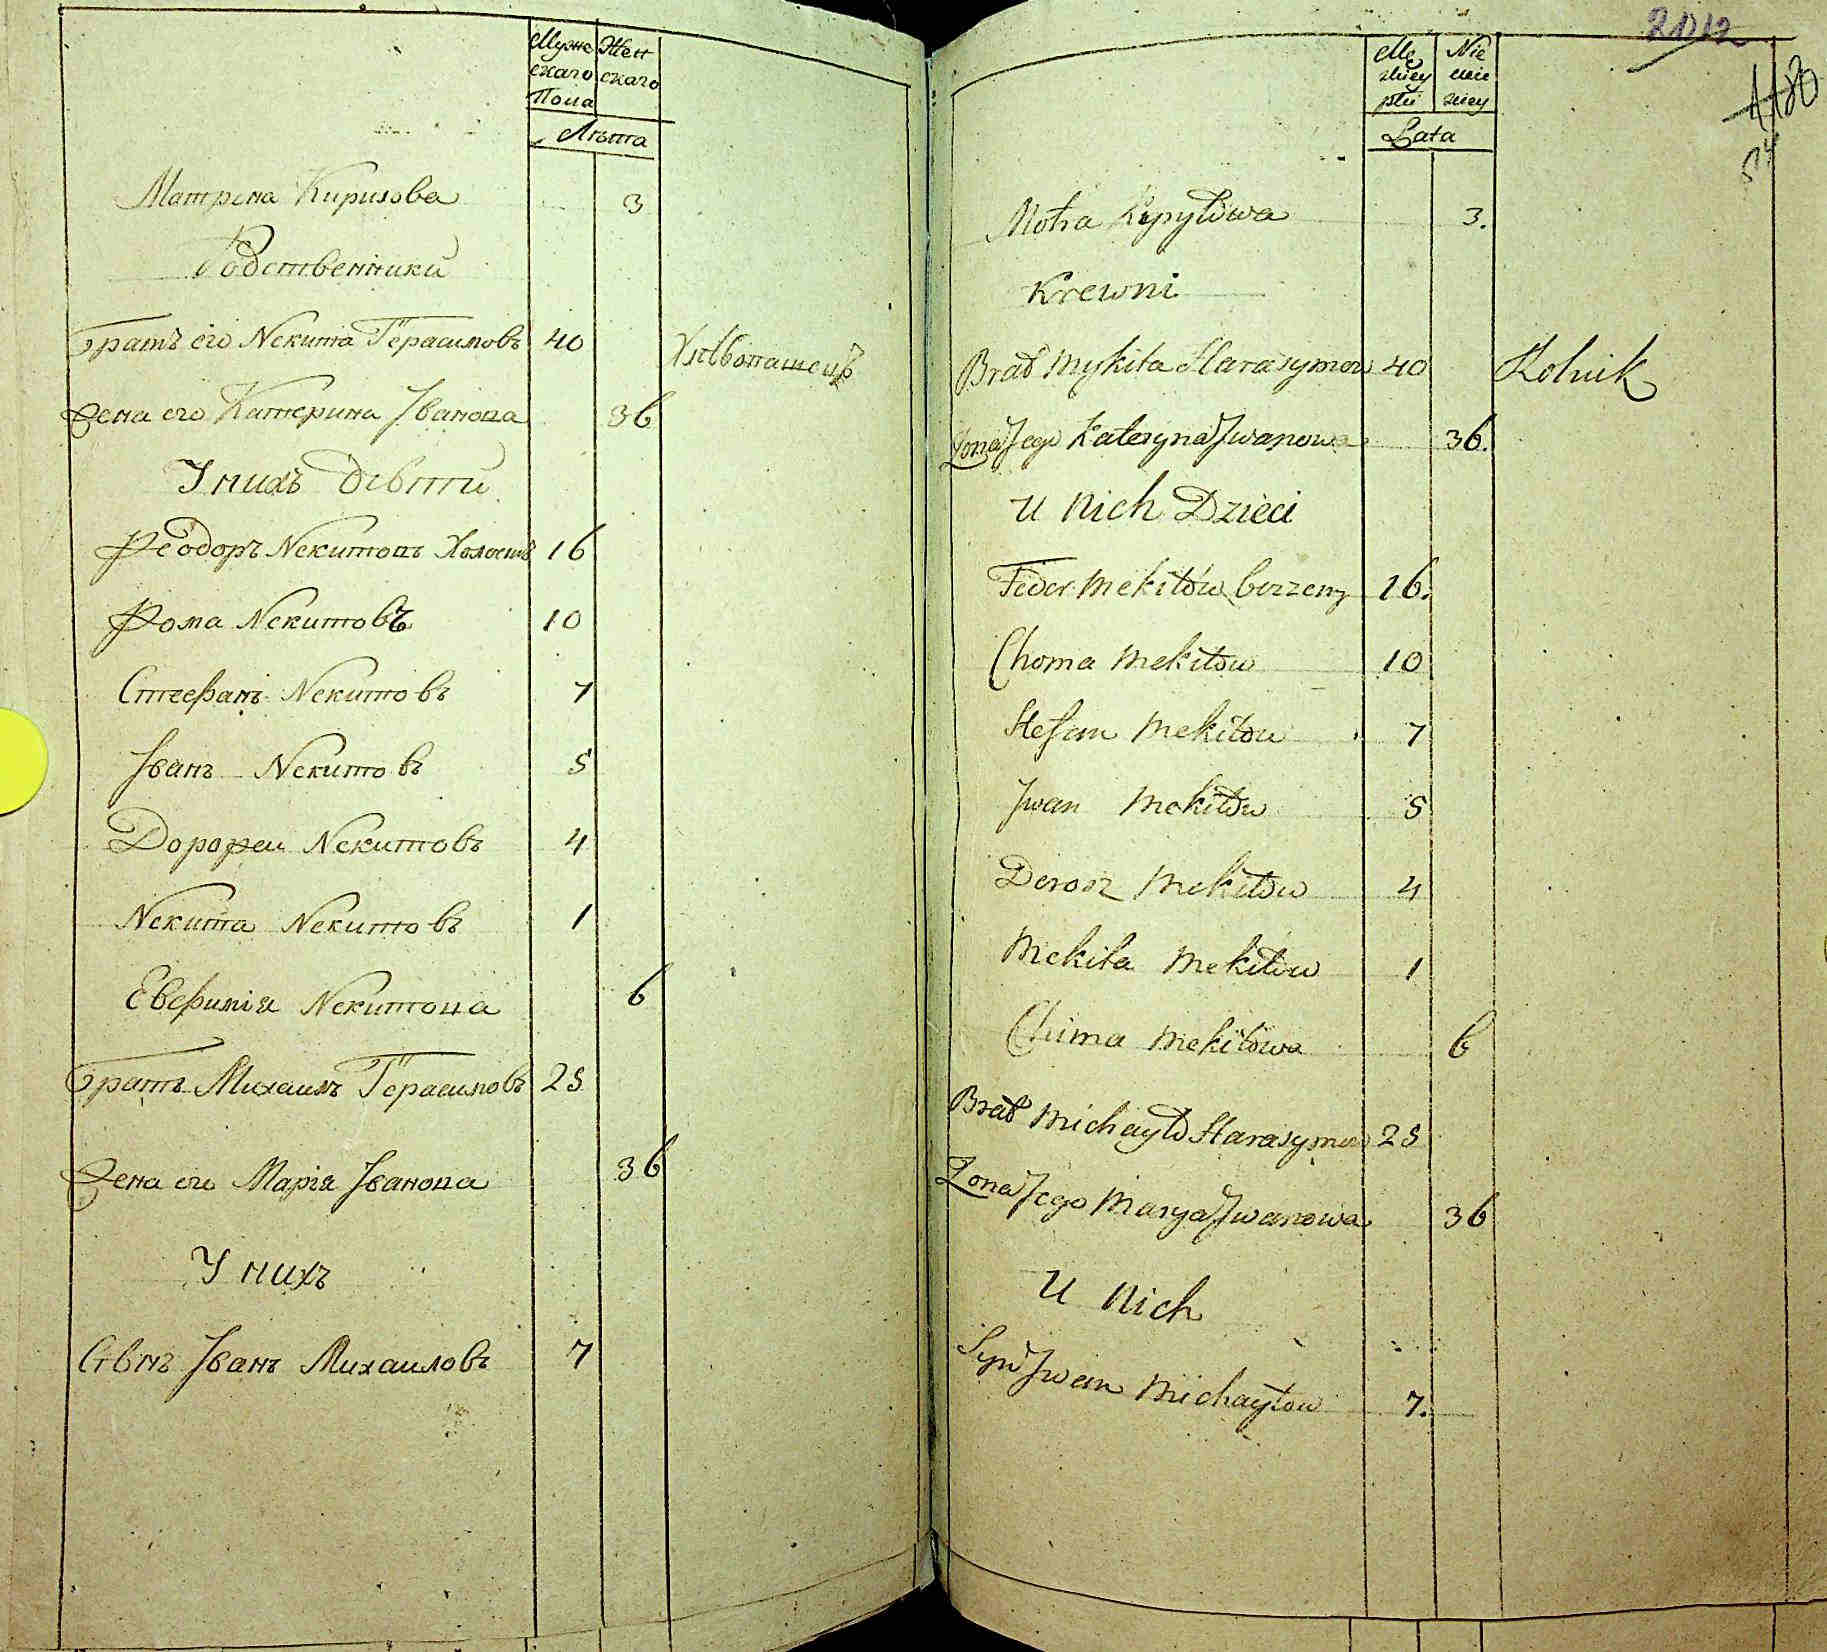 Муже Жен
скаго скаго
Пола
Лѣта
Матрена Кирилова 3
Родственники
Братъ его Некита Герасимовъ 40 Хлѣбопашецъ
Жена его Катерина Іванова 36
У нихъ дѣвти
Феодоръ Некитовъ Холостъ 16
Фома Некитовъ 10
Стефанъ Некитовъ 7
Іванъ Некитовъ 5
Дорофеи Некитовъ 4
Некита Некитовъ 1
Евфимія Некитова 6
Братъ Михаилъ Герасимовъ 25
Жена его Марія Іванова 36
У нихъ
Сынъ Іванъ Михаиловъ 7
Lata
Motra Kyryłowa 3.
Krewni
Brat Mykita Harasymow 40 Rolnik
Żona Jego Kateryna Jwanowa 36.
U nich Dzieci
Feder Mekitów bezzeny 16.
Choma Mekitow 10
Stefan Mekitow 7
Jwan Mekitow 5
Dorosz Mekitow 4
Mekita Mekitow 1
Chima Mekitowa 6
Brat Michayło Harasymow 25
Zona Jego Marya Jwanowa 36
U Nich
Syn Jwan Michayłow 7.